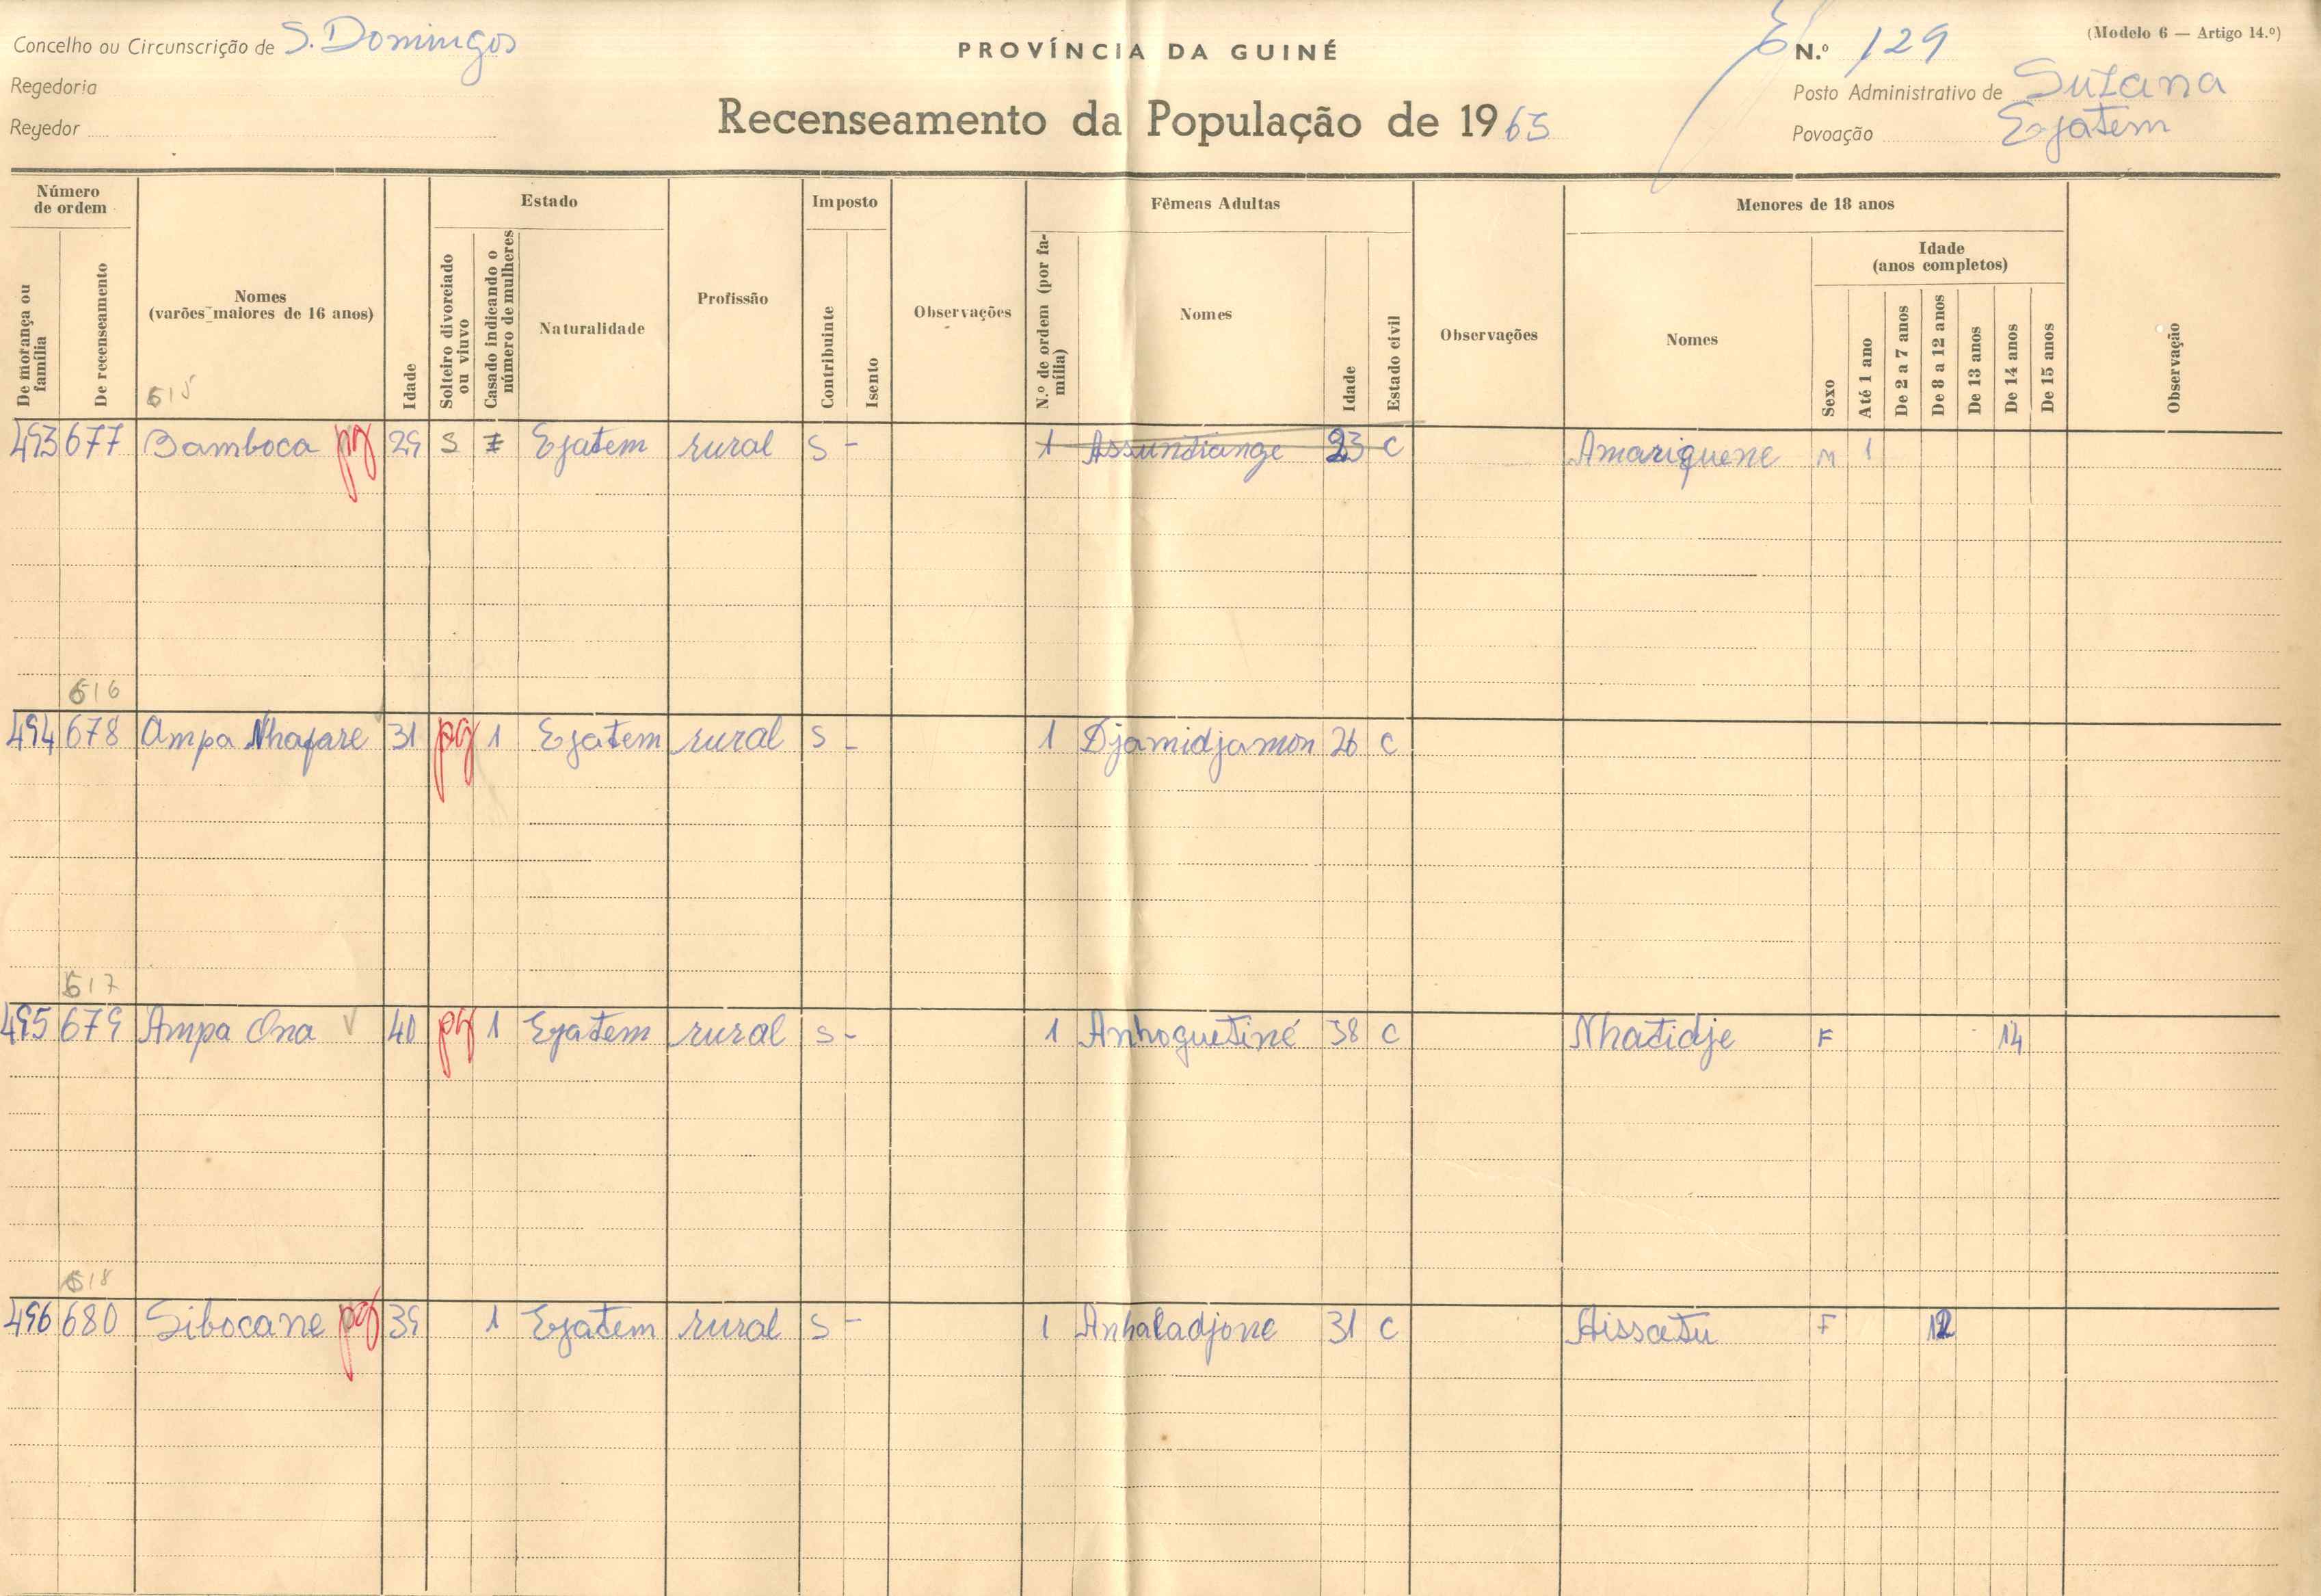 (Modelo 6 — Artigo 14.º)
Concelho ou Circunscrição de S. Domingos
PROVÍNCIA DA GUINÉ
N.º 129
Regedoria
Posto Administrativo de Suzana
Reyedor
Recenseamento da População de 1965
Povoação Ejatem
Número de ordem
Estado
Imposto
Fêmeas Adultas
Menores de 18 anos
De morança ou família
De recenseamento
Nomes
(varões maiores de 16 anos)
Idade
Solteiro divorciado ou viuvo
Casado indicando o número de mulheres
Naturalidade
Profissão
Contribuinte
Isento
Observações
N.º de ordem (por família)
Nomes
Idade
Estado civil
Observações
Nomes
Sexo
Idade
(anos completos)
Até 1 ano
De 2 a 7 anos
De 8 a 12 anos
De 13 anos
De 14 anos
De 15 anos
Observação
615
493 677 Bamboca pg 29 S 1 Ejatem rural S - 1 Assundiange 23 C Amariquene M 1
616
494 678 Ampa Nhafare 31 pg 1 Ejatem rural S - 1 Djamidjamon 26 C
617
495 679 Ampa Ona 40 pg 1 Ejatem rural S - 1 Anhoguetiné 38 C Nhatidje F 14
618
496 680 Sibocane pg 39 1 Ejatem rural S - 1 Anhaladjone 31 C Aissatu F 12